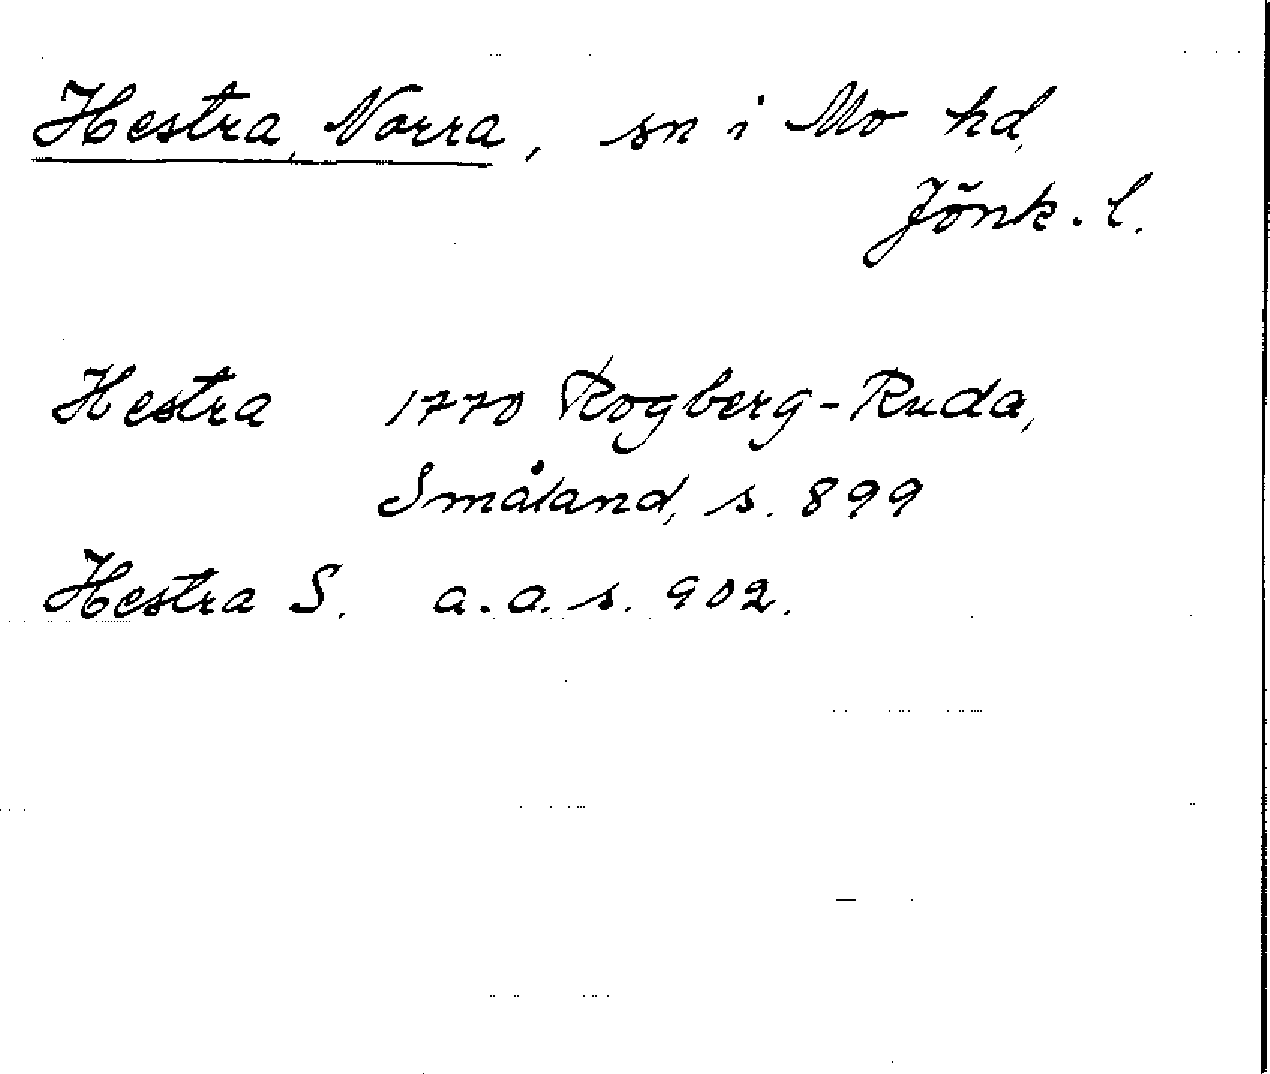 Hestra, Norra, sn i Mo hd,
Jönk. l.
Hestra 1770 Rogberg-Ruda,
Småland, s. 899
Hestra S. a.a. s. 902.